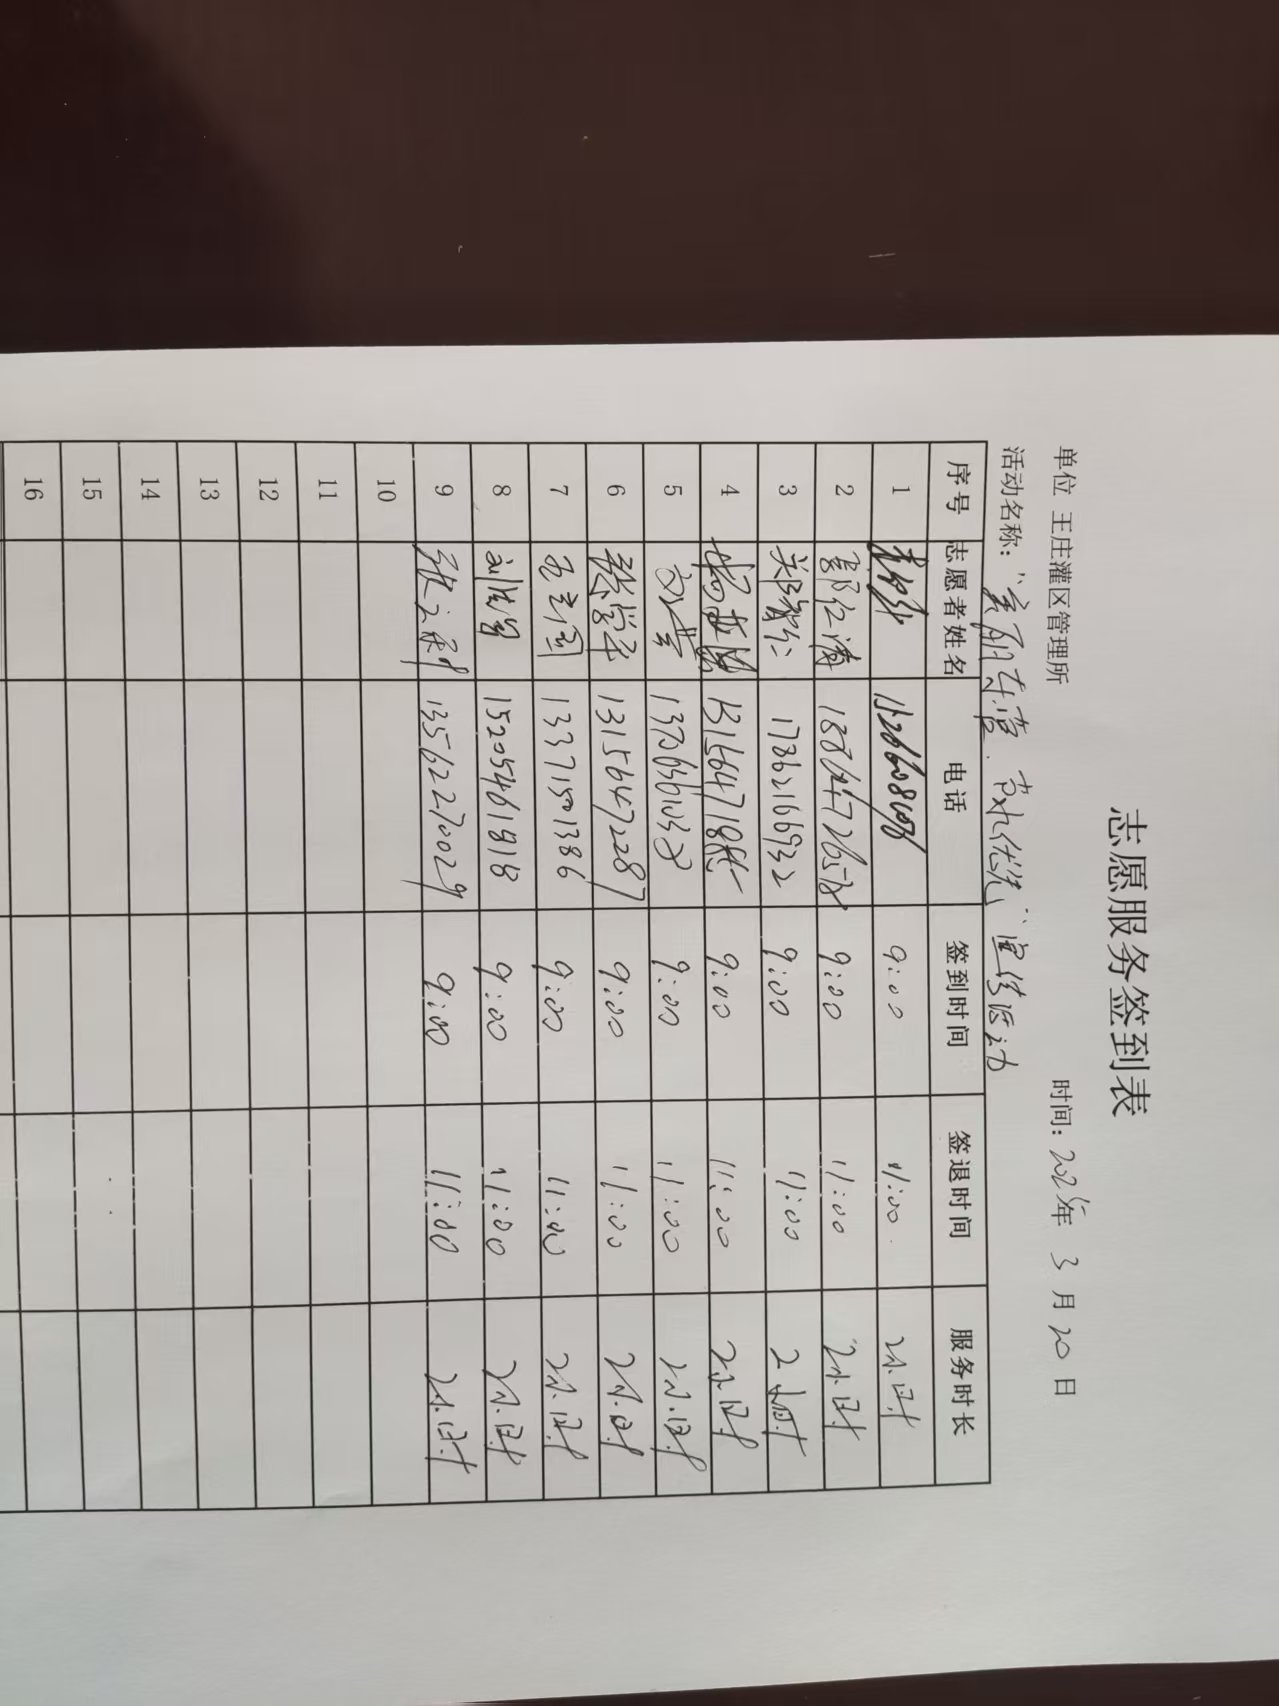 志愿服务签到表
单位 王庄灌区管理所 时间: 2025年 3月20日
活动名称: "美丽东营 节水优先" 宣传活动
序号 志愿者姓名 电话 签到时间 签退时间 服务时长
1 9:00 11:00 2小时
2 郭红满 9:00 11:00 2小时
3 17862166932 9:00 11:00 2小时
4 9:00 11:00 2小时
5 9:00 11:00 2小时
6 张学军 13156472287 9:00 11:00 2小时
7 13371501386 9:00 11:00 2小时
8 15205461818 9:00 11:00 2小时
9 张之利 13562270029 9:00 11:00 2小时
10
11
12
13
14
15
16